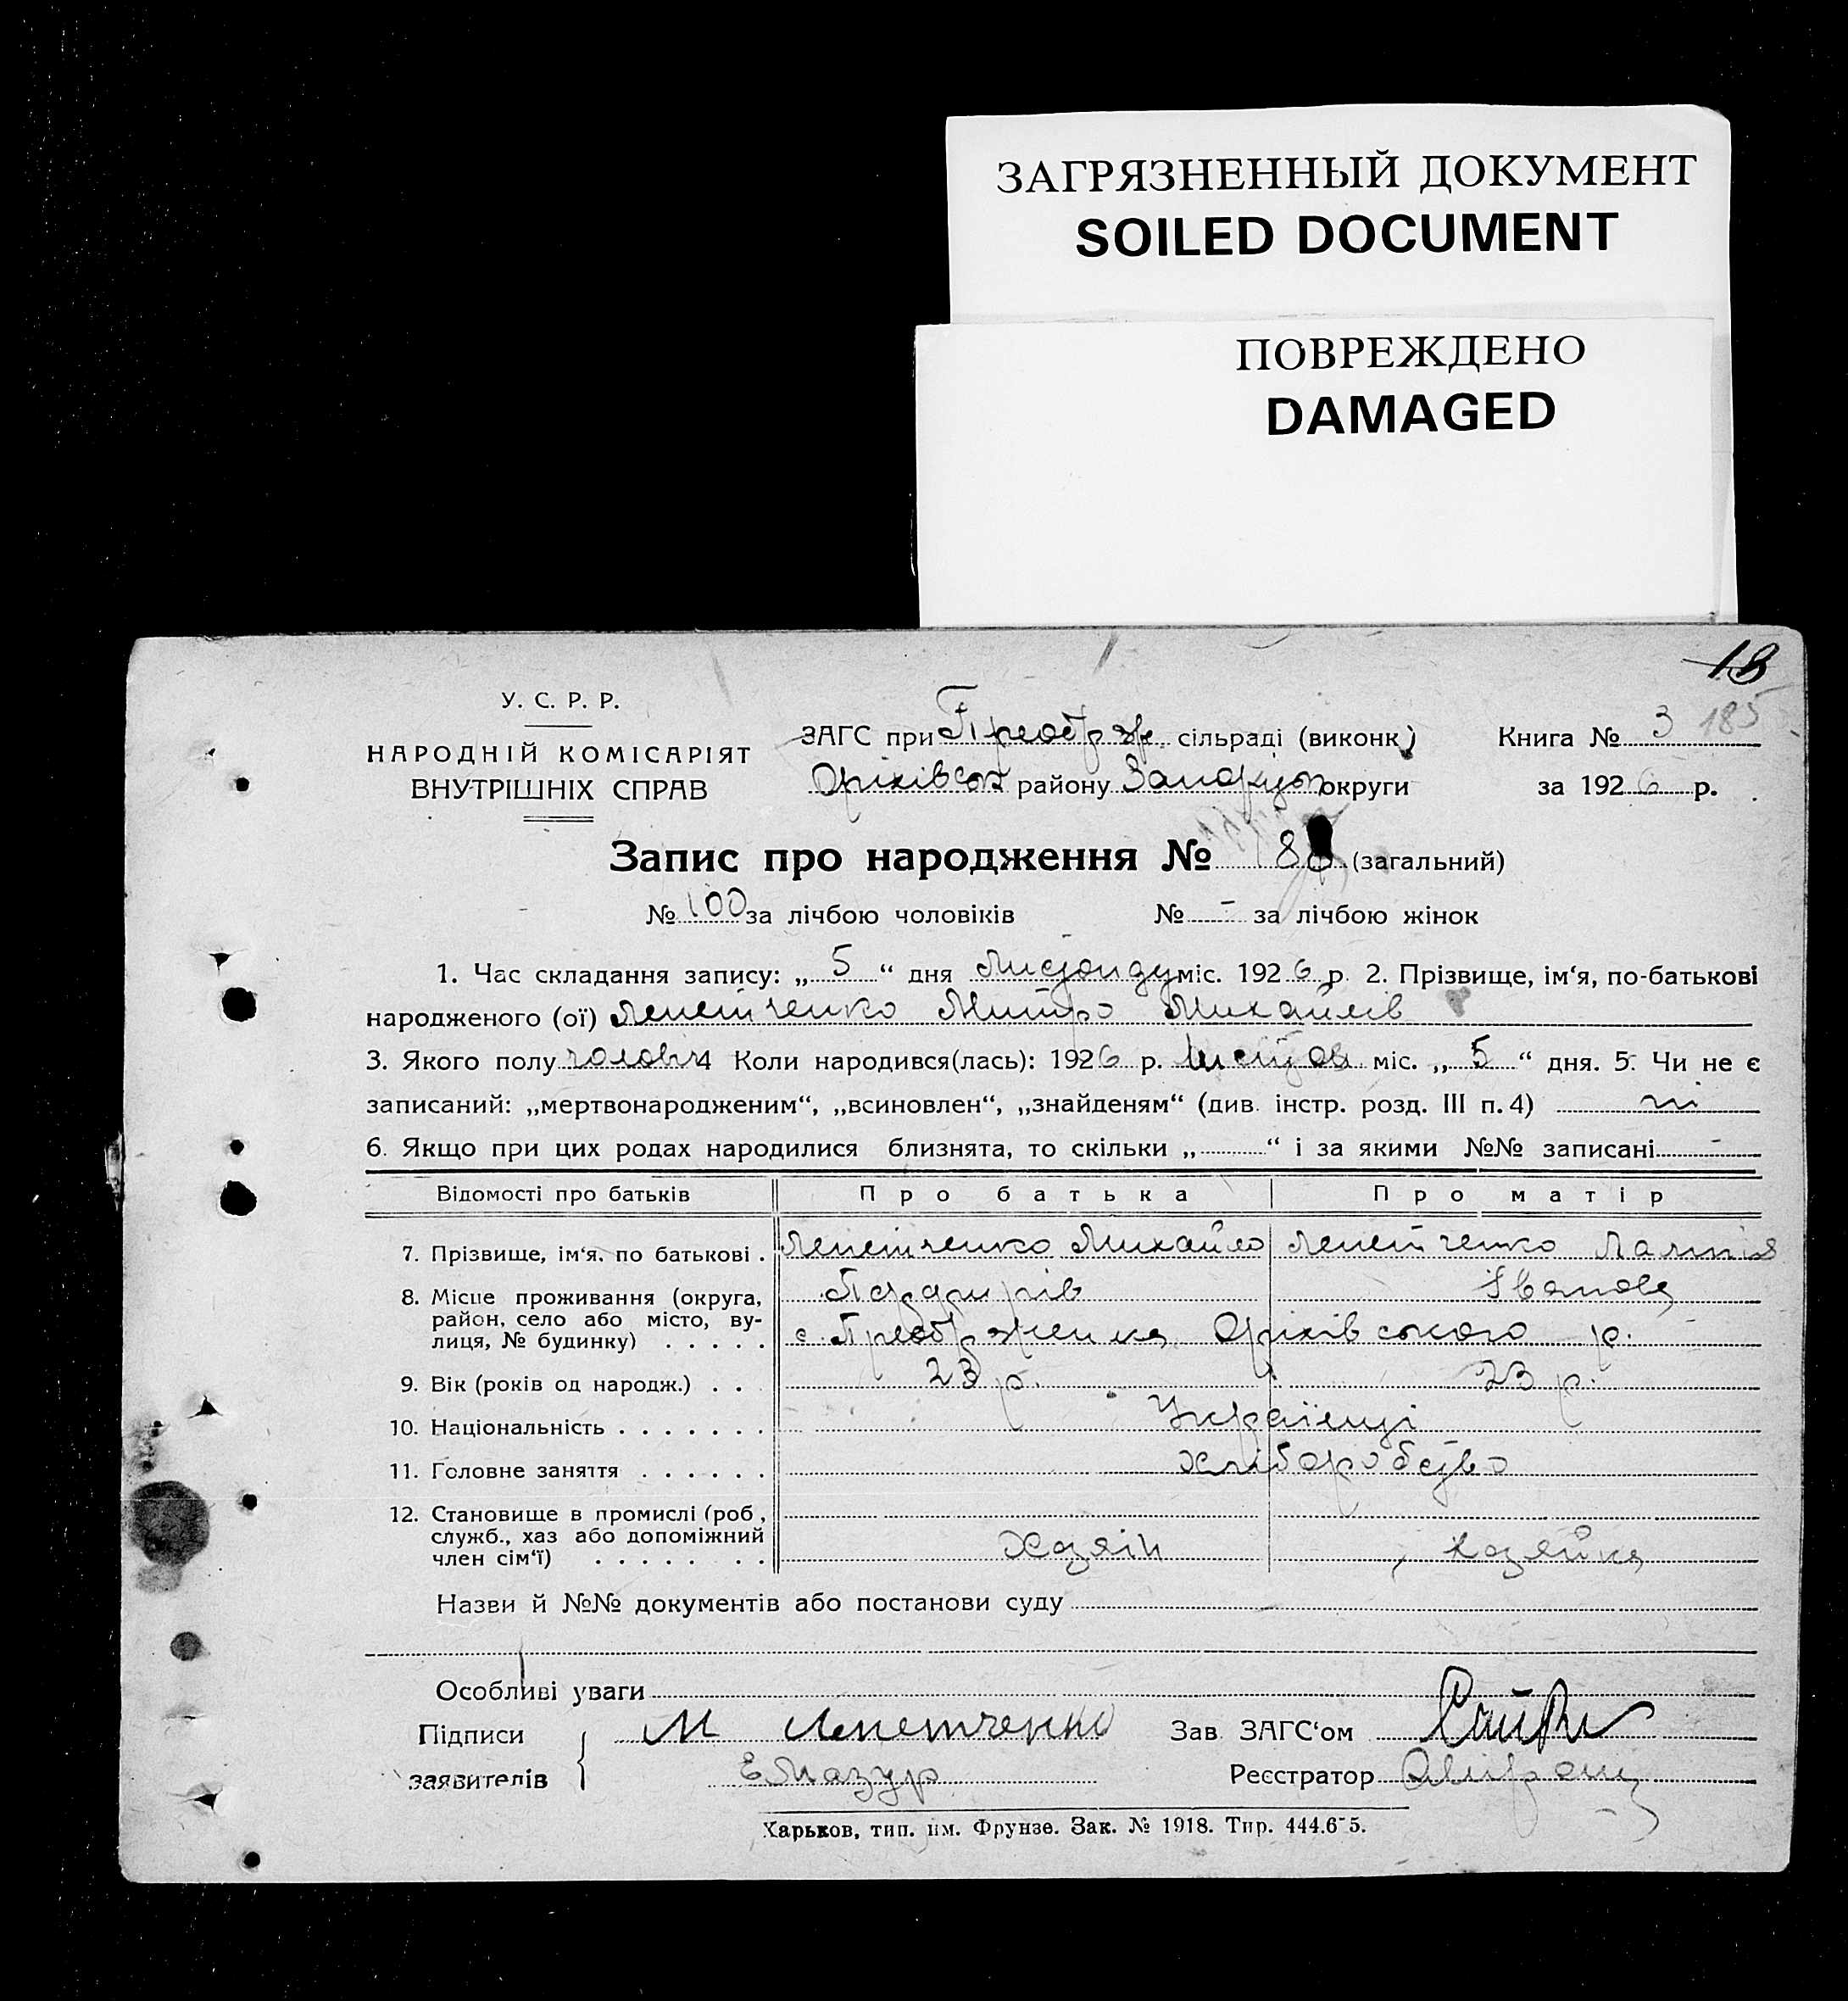 ЗАГРЯЗНЕННЫЙ ДОКУМЕНТ
SOILED DOCUMENT
ПОВРЕЖДЕНО
DAMAGED
18
У. С. Р. Р.
НАРОДНІЙ КОМІСАРІЯТ
ВНУТРІШНІХ СПРАВ
ЗАГС при Преображ. сільраді (виконк.)
Оріхівськ району Запоріж округи
Книга № 3 185
за 1926 р.
Запис про народження № 8 (загальний)
№ 100 за лічбою чоловіків № - за лічбою жінок
1. Час складання запису: „ 5 “ дня міс. 1926 р. 2. Прізвище, ім‘я, по-батькові
народженого (ої) Лепетченко Митро Михайлів
3. Якого полу чолович 4 Коли народився(лась): 1926 р. міс. „ 5 “ дня. 5. Чи не є
записаний: „мертвонародженим“, „всиновлен“, „знайденям“ (див. інстр. розд. III п. 4) ні
6. Якщо при цих родах народилися близнята, то скільки „ “ і за якими №№ записані -
Відомості про батьків Про батька Про матір
7. Прізвище, ім‘я, по батькові . Лепетченко Михайло Лепетченко
Іванова
8. Місце проживання (округа,
район, село або місто, ву-
лиця, № будинку) . . . . . с. Преображенка Оріхівського р.
9. Вік (років од народж.) . . . 23 р. 23 р.
10. Національність . . . . . . . Українці
11. Головне заняття . . . . . . хліборобство
12. Становище в промислі (роб.,
служб., хаз або допоміжний
член сім‘ї) . . . . . . . Хазяін хазяйка
Назви й №№ документів або постанови суду
Особливі уваги
Підписи
заявителів
М Лепетченко
Е Мазур
Зав ЗАГС‘ом
Реєстратор
Харьков, тип. им. Фрунзе. Зак. № 1918. Тир. 444.6-5.